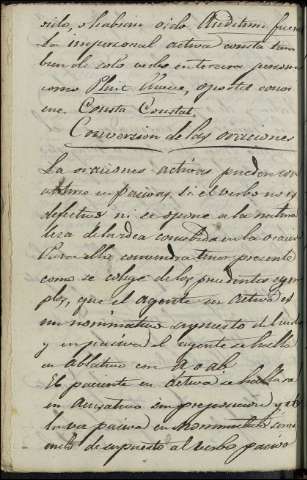 sido, o habran sido. Auditum fuer
La impersonal activa consta tam
bien de solo verbo en tercera persona
como Pluit llueve, oportet convi
ene. Constat
Conversion de las oraciones
La oraciones activas pueden con
vertirse en pasivas, si el verbo no es
defectivo ni se opone a la natura
leza de la idea concebida en la oracion
Para ello convendra tener presente
como se colige de los precedentes ejem
plos, que el agente en activa es
un nominativo supuesto del verbo
y en pasiva el agente se halla
en ablativo con a o ab.
El paciente en activa se hallara
en acusativo sin preposicion y
la voz pasiva en nominativo como
supuesto al verbo pasivo